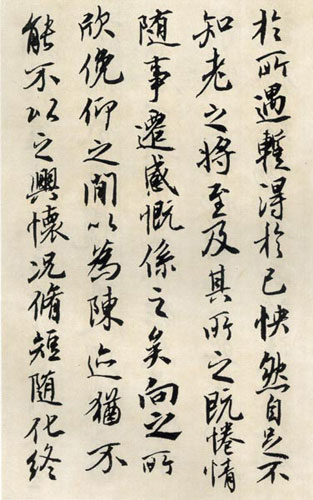 於所遇暫得於己快然自足不
知老之將至及其所之既惓情
随事遷感慨係之矣向之所
欣俛仰之間以為陳迹猶不
能不以之興懷況脩短随化終